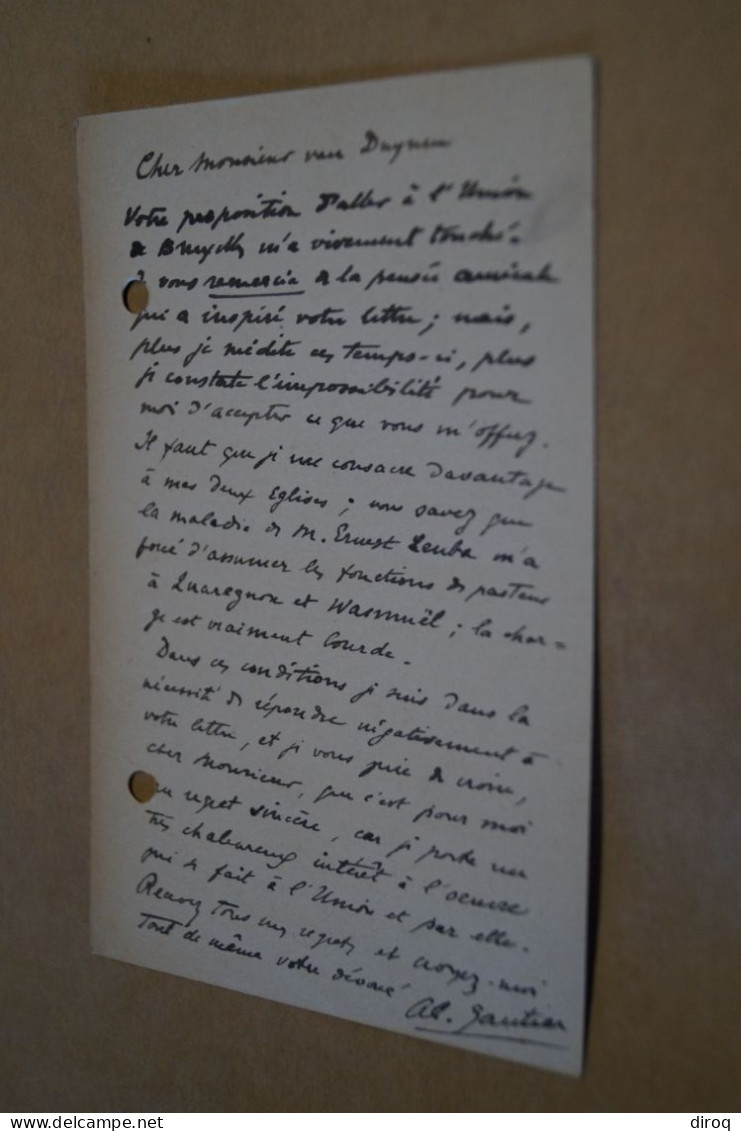 Cher Monsieur van
Votre proposition d'aller à l'Union
de Bruxelles m'a vivement touché.
vous remercie de la pensée amicale
qui a inspiré votre lettre ; mais,
plus je médite ces temps-ci, plus
je constate l'impossibilité pour
moi d'accepter ce que vous m'offrez.
Il faut que je me consacre davantage
à mes deux Eglises ; vous savez que
la maladie de M. Ernest Leuba m'a
forcé d'assumer les fonctions de pasteur
à Quaregnon et Wasmuël ; la char=
ge est vraiment lourde.
Dans ces conditions je suis dans la
nécessité de répondre négativement à
votre lettre, et je vous prie de croire,
cher Monsieur, que c'est pour moi
un regret sincère, car je porte un
très chaleureux intérêt à l'oeuvre
qui se fait à l'Union et par elle.
Recevez tous mes regrets et croyez-moi
tout de même votre dévoué
Al. Gautier
delcampe.net
diroq